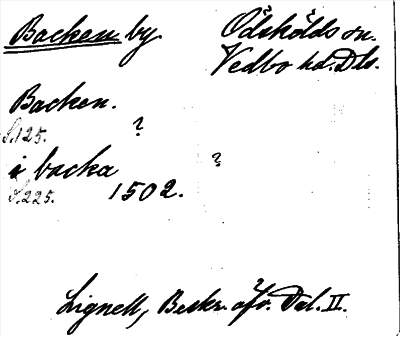 Backen by Ödskölds sn.
Vedbo hd. Dls.
Backen.
S.125. ?
i backa ?
S.225. 1502.
Lignell, Beskr. öfv. Dal. II.